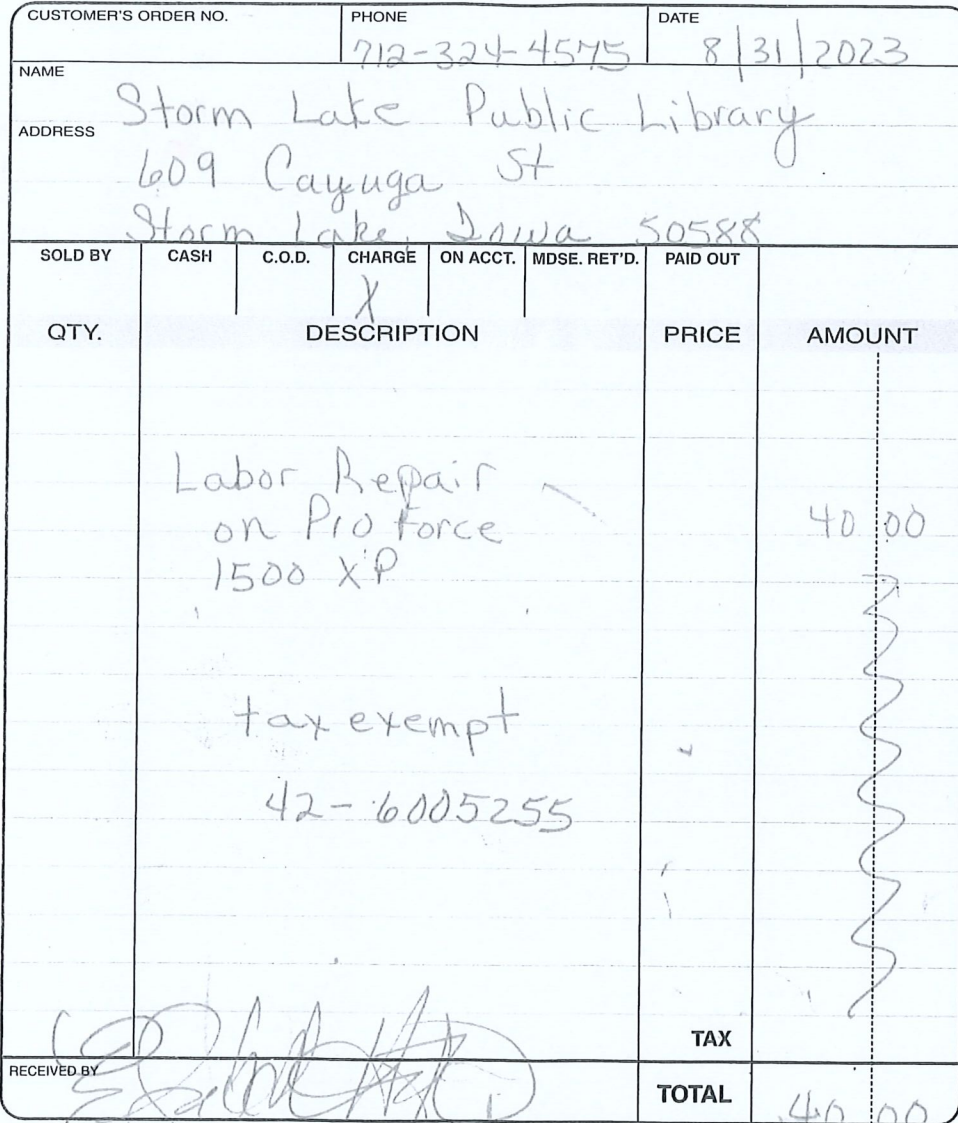 CUSTOMER'S ORDER NO. PHONE DATE
712-324-4575 8/31/2023
NAME
Storm Lake Public Library
ADDRESS
609 Cayuga St
Storm Lake, Iowa 50588
SOLD BY CASH C.O.D. CHARGE ON ACCT. MDSE. RET'D. PAID OUT
X
QTY. DESCRIPTION PRICE AMOUNT
Labor Repair
on Pro Force 40.00
1500 XP
tax exempt
42-6005255
TAX
RECEIVED BY
TOTAL 40 00